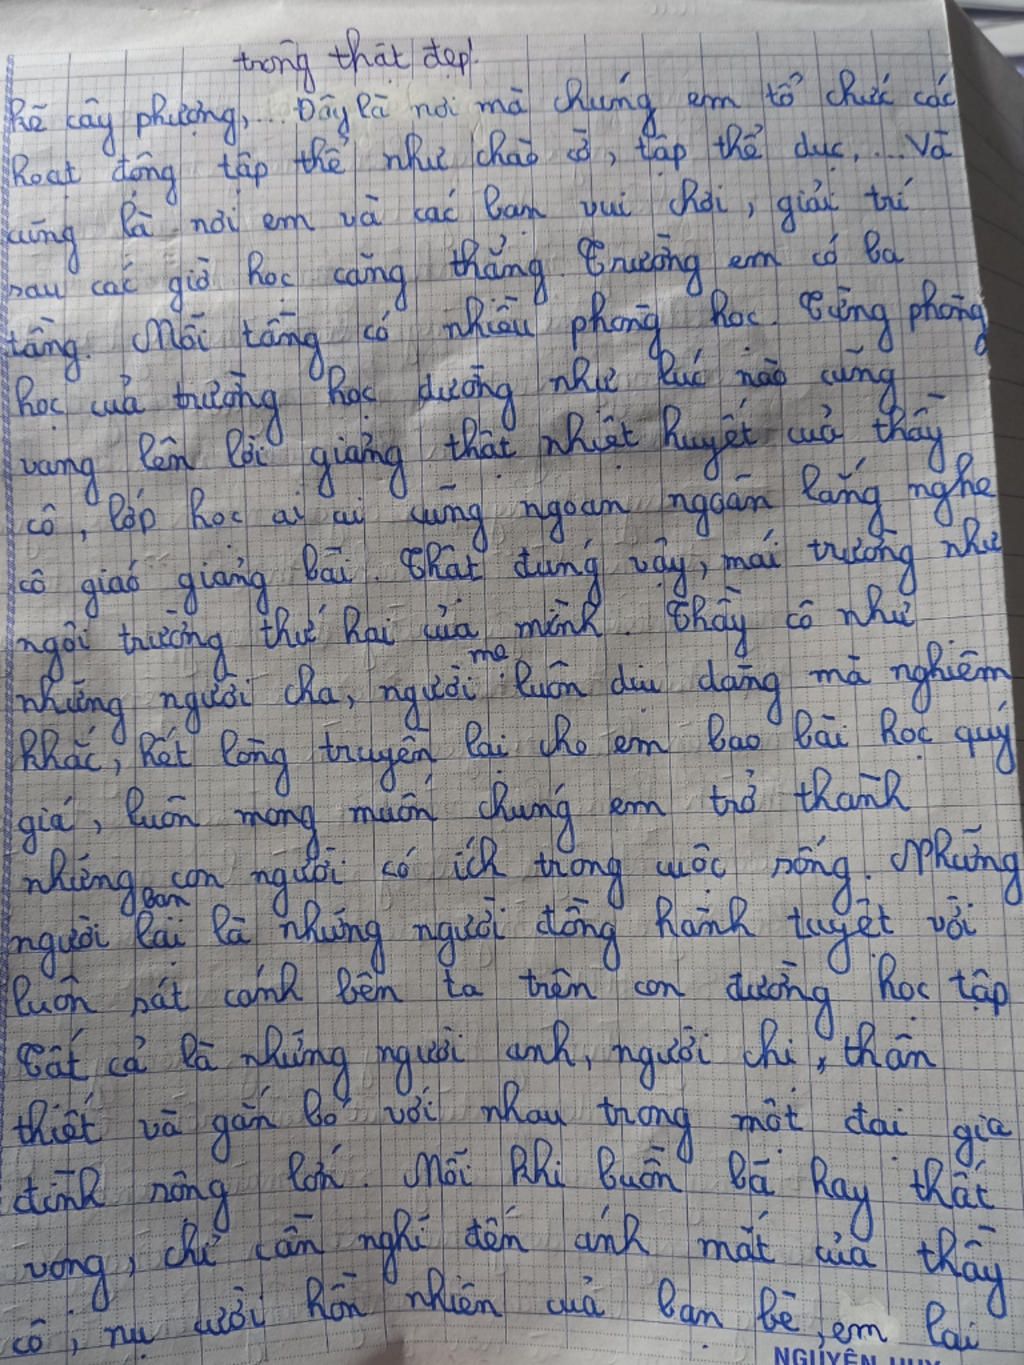 trông thật đẹp!
kẽ cây phượng,... Đây là nơi mà chúng em tổ chức các
hoạt động tập thể như chào cờ, tập thể dục,... Và
cũng là nơi em và các bạn vui chơi, giải trí
sau các giờ học căng thẳng. Trường em có ba
tầng. Mỗi tầng có nhiều phòng học. Từng phòng
học của trường học dường như lúc nào cũng
vang lên lời giảng thật nhiệt huyết của thầy
cô, lớp học ai ai cũng ngoan ngoãn lắng nghe
cô giáo giảng bài. Thật đúng vậy, mái trường như
ngôi trường thứ hai của mình. Thầy cô như
những người cha, người mẹ luôn dịu dàng mà nghiêm
khắc, hết lòng truyền lại cho em bao bài học quý
giá, luôn mong muốn chúng em trở thành
những con người có ích trong cuộc sống. Những
người bạn lại là những người đồng hành tuyệt vời
luôn sát cánh bên ta trên con đường học tập
Tất cả là những người anh, người chị, thân
thiết và gắn bó với nhau trong một đại gia
đình rộng lớn. Mỗi khi buồn bã hay thất
vọng, chỉ cần nghĩ đến ánh mắt của thầy
cô, nụ cười hồn nhiên của bạn bè, em lại